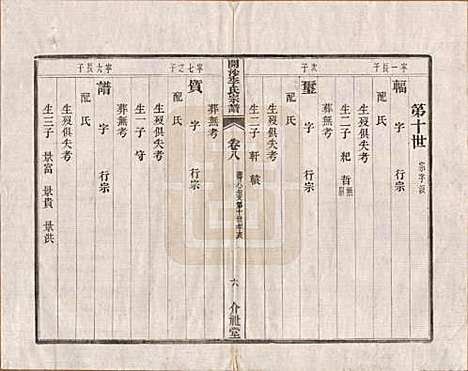 第十世
宗字派
宰一長子
輻 字 行宗
配 氏
生歿俱失考
生二子 杞 哲
葬無考
次子
璽 字 行宗
配 氏
生歿俱失考
生二子 軒 轅
葬無考
開沙李氏宗譜
卷八
第十世
六
介祉堂
宰七之子
質 字 行宗
配 氏
生歿俱失考
生一子 守
葬無考
宰九長子
譜 字 行宗
配 氏
生歿俱失考
生三子 景富 景貴 景洪